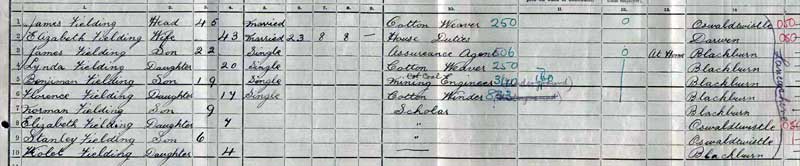 1 James Fielding Head 45 Married Cotton Weaver 250 0 Oswaldtwistle 050
2 Elizabeth Fielding Wife 43 Married 23 8 8 — House Duties Darwen 060
3 James Fielding Son 22 Single Assurance Agent 606 0 At Home Blackburn
4 Lynda Fielding Daughter 20 Single Cotton Weaver 250 Blackburn
5 Benjiman Fielding Son 19 Single Mining Engineer Blackburn
6 Florence Fielding Daughter 17 Single Cotton Winder Blackburn
7 Norman Fielding Son 9 Scholar Blackburn
8 Elizabeth Fielding Daughter 7 " Oswaldtwistle
9 Stanley Fielding Son 6 " Oswaldtwistle
10 Fielding Daughter 4 Blackburn
Lancashire